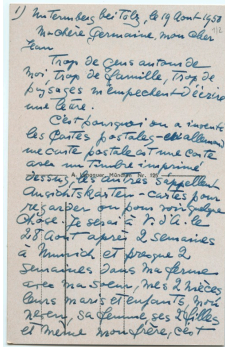 1) Unternberg bei Tölz, le 19 Août 1958
Ma chère Germaine, mon cher
Jean
Trop de gens autour de
moi, trop de famille, trop de
paysages m'empêchent d'écrire
une lettre.
C'est pourquoi on a inventé
les cartes postales - en allemand
une carte postale est une carte
avec un timbre imprimé
dessus, les autres s'appellent
Ansichtskarten - cartes pour
regarder ou pour voir quelque
chose. Je serai à V. d'A. le
28 Août après 2 semaines
à Munich et presque 2
semaines dans ma ferme
avec ma soeur, mes 2 nièces
leurs maris et enfants, mon
neveu, sa femme, ses 2 filles
et même mon frère, c'est